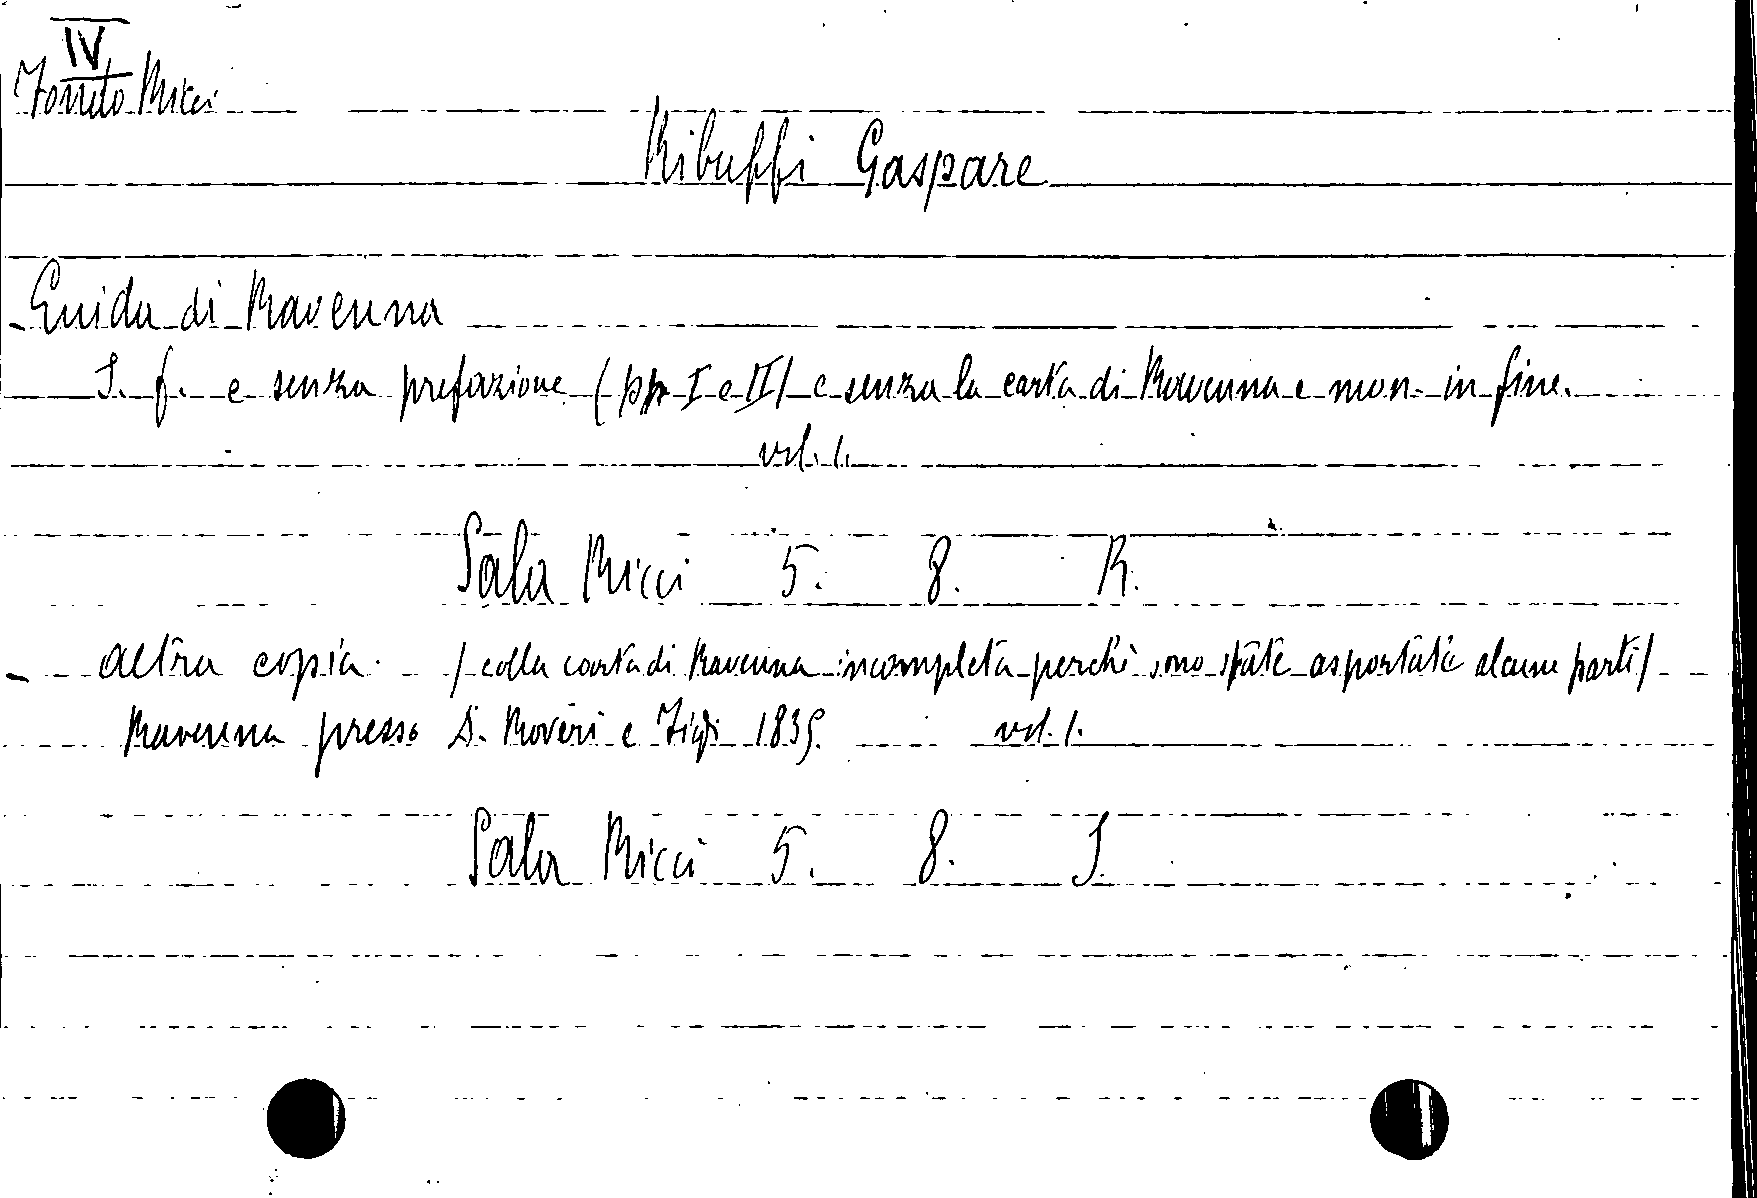 IV
Fondo Ricci
Ribuffi Gaspare
- Guida di Ravenna
S. f. e senza prefazione (pp. I e II) e senza la carta di Ravenna e mon. in fine.
vol. 1.
Sala Ricci 5. 8. R.
- altra copia. (colla carta di Ravenna incompleta perchè sono state asportate alcune parti)
Ravenna presso A. Roveri e Figli 1835. vol. 1.
Sala Ricci 5. 8. S.